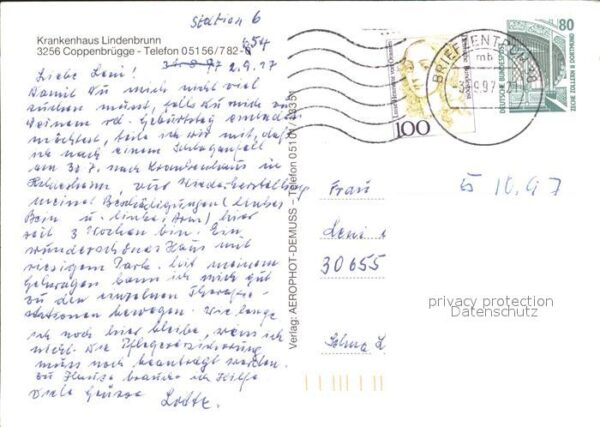 Station 6
Krankenhaus Lindenbrunn
3256 Coppenbrügge - Telefon 05156/782-0
654
2.9.97
Liebe Leni!
Damit du mich nicht viel
suchen musst, falls du mich zu
deinem Geburtstag einladen
möchtest, teile ich dir mit, daß
ich nach einem Schlaganfall
am 30.7. nach Krankenhaus in
zur Wiederherstellung
meiner (linkes
Bein u. linker Arm) hier
seit 3 Wochen bin. Ein
wunderschönes Haus mit
riesigem Park. Mit meinem
Gehwagen kann ich mich gut
zu den einzelnen Therapie-
stationen bewegen. Wie lange
ich noch hier bleibe, weiss ich
nicht. Die Pflegeversicherung
muss noch beantragt werden.
Zu Hause brauche ich Hilfe
Viele Grüsse
Lotte.
Verlag: AEROPHOT-DEMUSS - Telefon 05101/
100
80
DEUTSCHE BUNDESPOST
ZECHE ZOLLERN II DORTMUND
BRIEFZENTRUM 30
mb
3.9.97-21
Frau
10.9.7
Leni
30655
privacy protection
Datenschutz